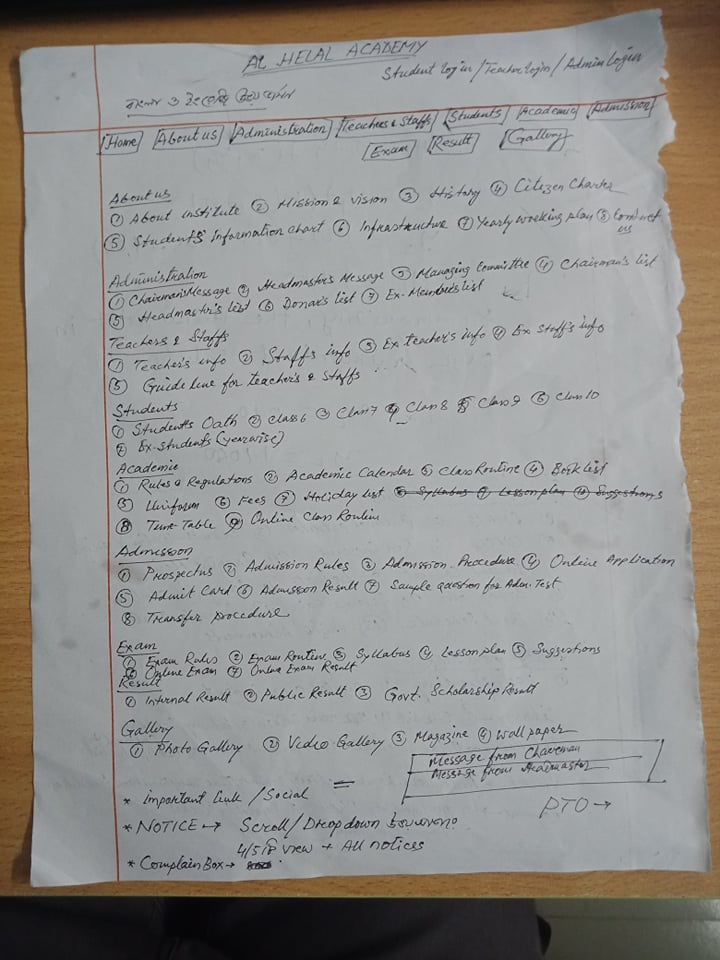 AL HELAL ACADEMY
Student login / Teacher login / Admin Login
বাংলা ও ইংরেজি
Home About us Administration Teachers & Staffs Students Academic Admission
Exam Result Gallery
About us
① About institute ② Mission & vision ③ History ④ Citizen Charter
⑤ Student's Information chart ⑥ Infrastructure ⑦ Yearly working plan ⑧ Contact us
Administration
① Chairman's Message ② Headmaster's Message ③ Managing Committee ④ Chairman's list
⑤ Headmaster's list ⑥ Donar's list ⑦ Ex-Member's list
Teachers & Staffs
① Teacher's info ② Staff's info ③ Ex teacher's info ④ Ex Staff's info
⑤ Guide line for teacher's & staffs
Students
① Student's Oath ② Class 6 ③ Class 7 ④ Class 8 ⑤ Class 9 ⑥ Class 10
⑦ Ex-Students (yearwise)
Academic
① Rules & Regulations ② Academic Calendar ③ Class Routine ④ Book list
⑤ Uniform ⑥ Fees ⑦ Holiday list ⑧ Syllabus ⑨ Lesson plan ⑩ Suggestions
⑧ Time-Table ⑨ Online Class Routine
Admission
① Prospectus ② Admission Rules ③ Admission Procedure ④ Online Application
⑤ Admit Card ⑥ Admission Result ⑦ Sample question for Adm. Test
⑧ Transfer procedure
Exam
① Exam Rules ② Exam Routine ③ Syllabus ④ Lesson plan ⑤ Suggestions
⑥ Online Exam ⑦ Online Exam Result
Result
① Internal Result ② Public Result ③ Govt. Scholarship Result
Gallery
① Photo Gallery ② Video Gallery ③ Magazine ④ Wall paper
Message from Chairman
Message from Headmaster
* Important link / Social =
PTO →
* NOTICE → Scroll / Dropdown
4/5 টি view + All notices
* Complain Box →